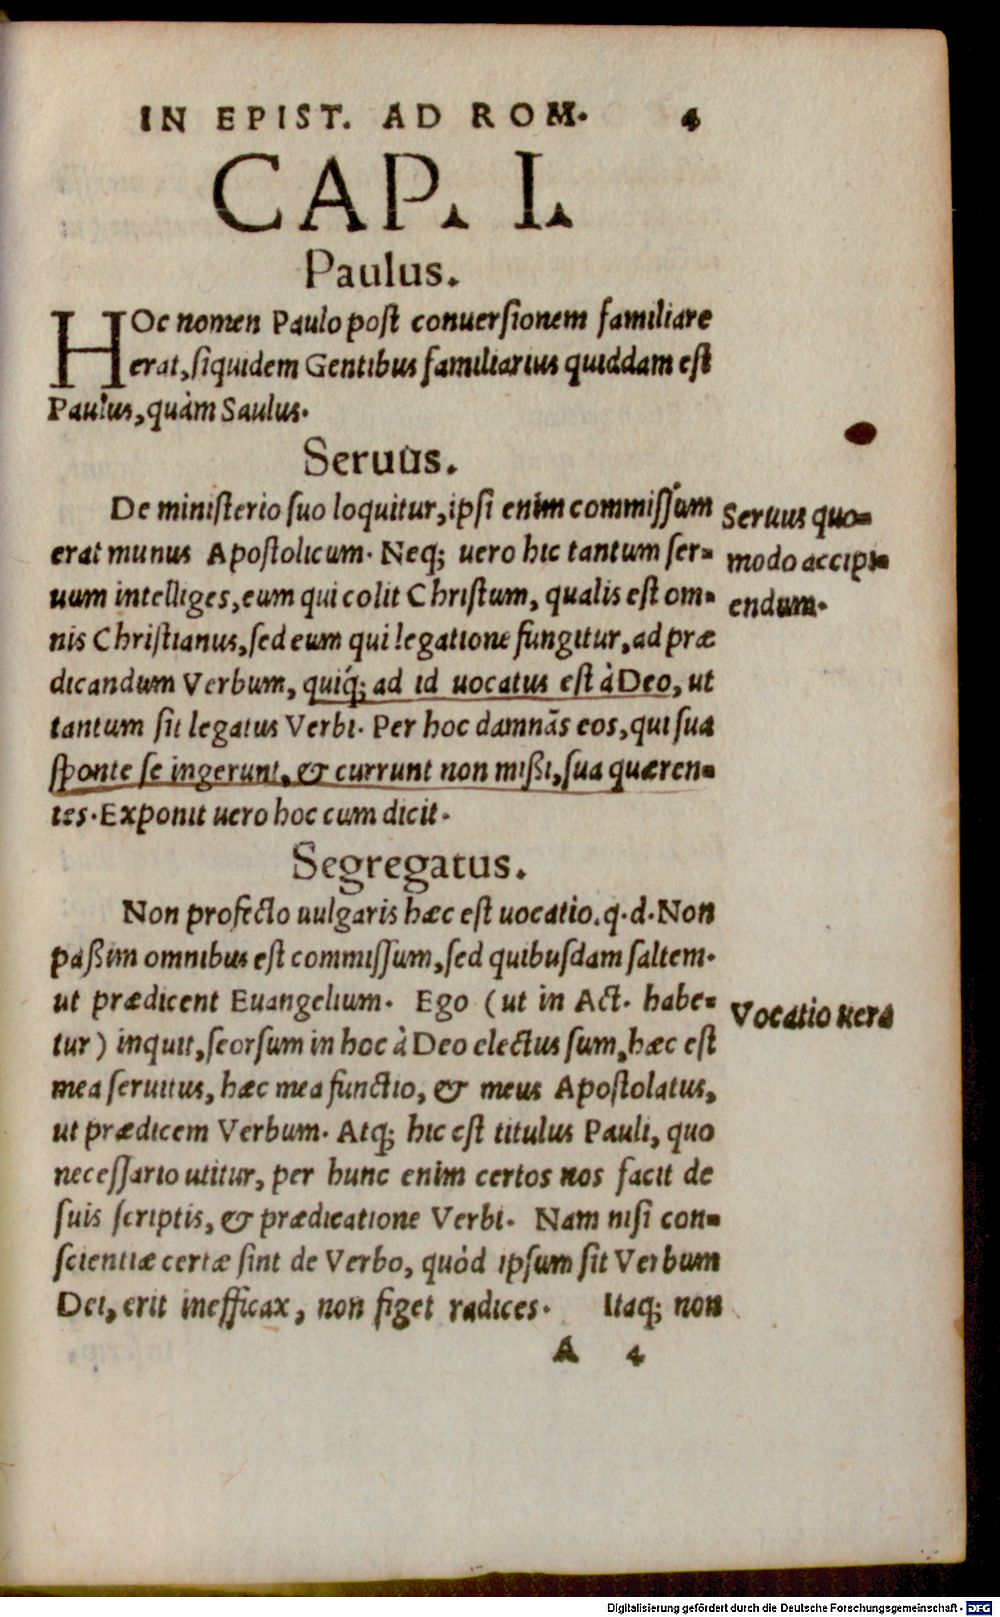 IN EPIST. AD ROM. 4
CAP. I.
Paulus.
HOc nomen Paulo post conuersionem familiare
erat, siquidem Gentibus familiarius quiddam est
Paulus, quàm Saulus.
Seruus.
De ministerio suo loquitur, ipsi enim commissum
erat munus Apostolicum. Neq; uero hic tantum ser-
uum intelliges, eum qui colit Christum, qualis est om-
nis Christianus, sed eum qui legatione fungitur, ad præ
dicandum Verbum, quiq́; ad id uocatus est à Deo, ut
tantum sit legatus Verbi. Per hoc damnãs eos, qui sua
sponte se ingerunt, & currunt non mißi, sua quæren-
tes. Exponit uero hoc cum dicit.
Seruus quo-
modo accipi-
endum.
Segregatus.
Non profecto uulgaris hæc est uocatio. q. d. Non
paßim omnibus est commissum, sed quibusdam saltem.
ut prædicent Euangelium. Ego (ut in Act. habe-
tur) inquit, seorsum in hoc à Deo electus sum, hæc est
mea seruitus, hæc mea functio, & meus Apostolatus,
ut prædicem Verbum. Atq; hic est titulus Pauli, quo
necessario utitur, per hunc enim certos nos facit de
suis scriptis, & prædicatione Verbi. Nam nisi con-
scientiæ certæ sint de Verbo, quòd ipsum sit Verbum
Dei, erit inefficax, non figet radices. Itaq; non
Vocatio uera
A 4
Digitalisierung gefördert durch die Deutsche Forschungsgemeinschaft - DFG